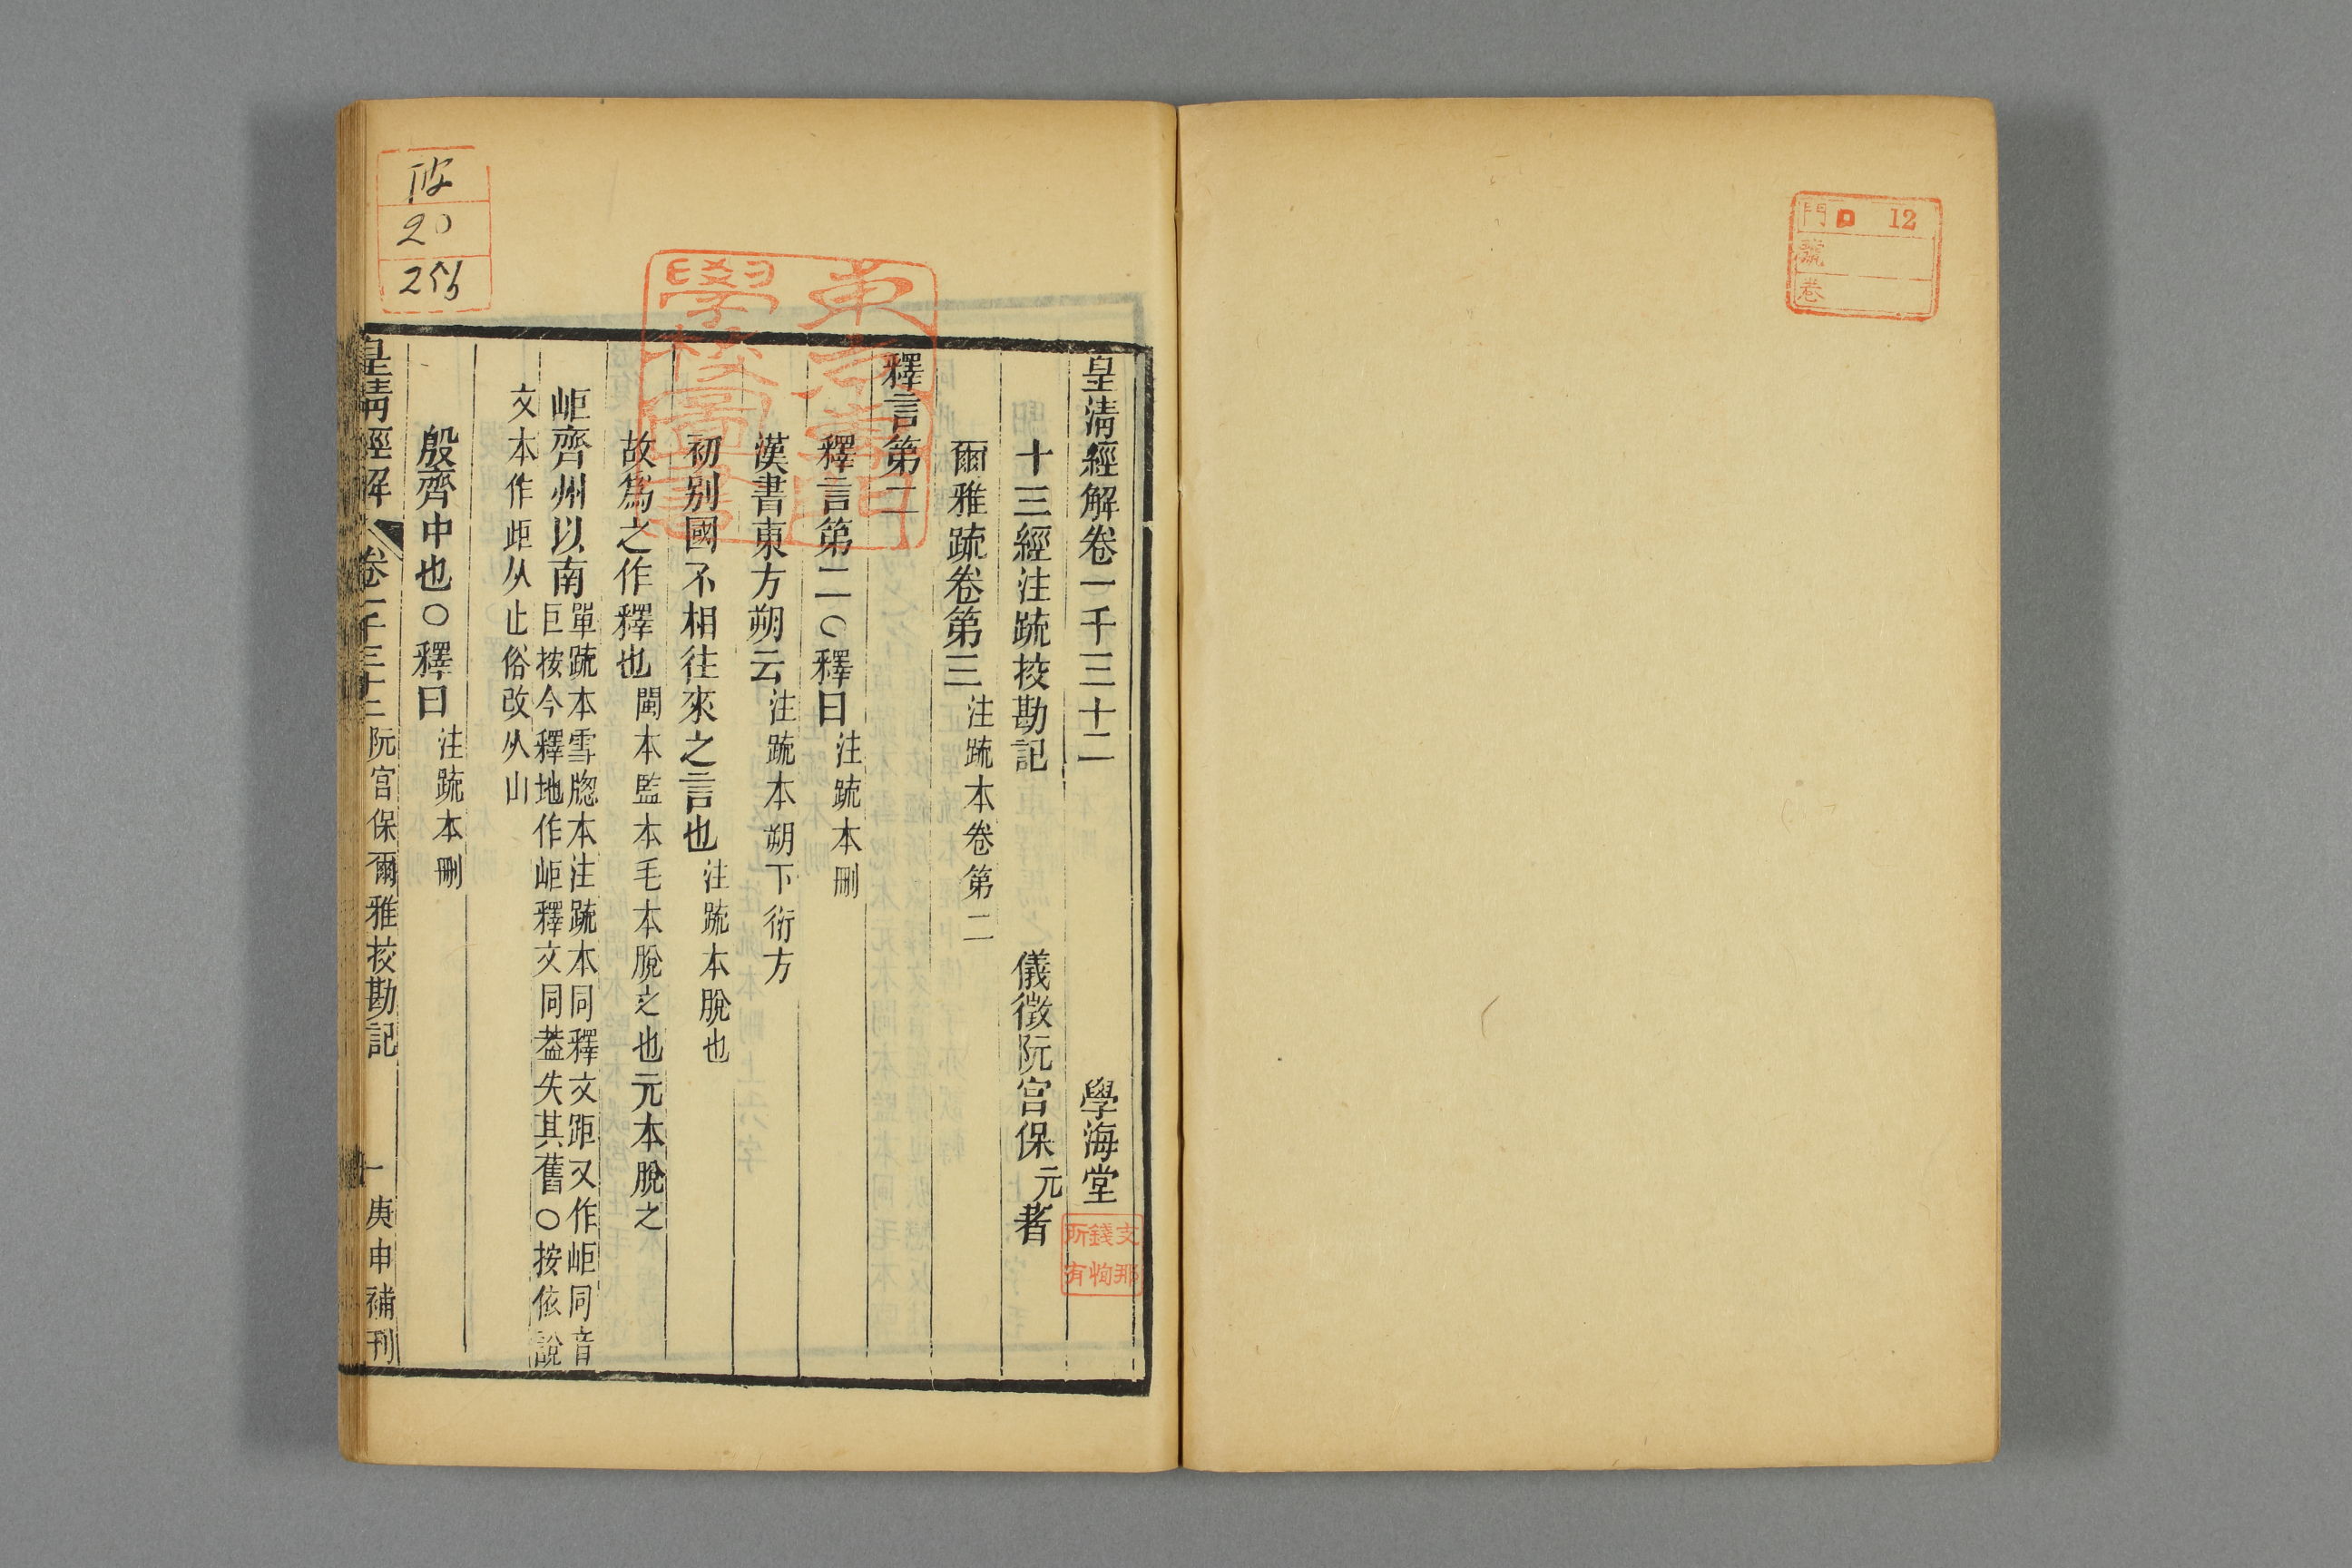 門 D 12
號
卷
皇清經解卷一千三十二 學海堂
十三經注䟽挍勘記 儀徵阮宮保元著
爾雅䟽卷第三 注䟽本卷第二
釋言第二
釋言第二○釋曰 注䟽本刪
漢書東方朔云 注䟽本朔下衍方
初別國不相往來之言也 注䟽本脫也
故爲之作釋也 閩本監本毛本脫之也元本脫之
岠齊州以南 單䟽本雪牕本注䟽本同釋文距又作岠同音
巨按今釋地作岠釋文同葢失其舊○按依說
文本作歫从止俗改从山
殷齊中也○釋曰 注䟽本刪
皇清經解 卷一千三十二 阮宮保爾雅挍勘記 一 庚申補刊
支那
錢恂
所有
20